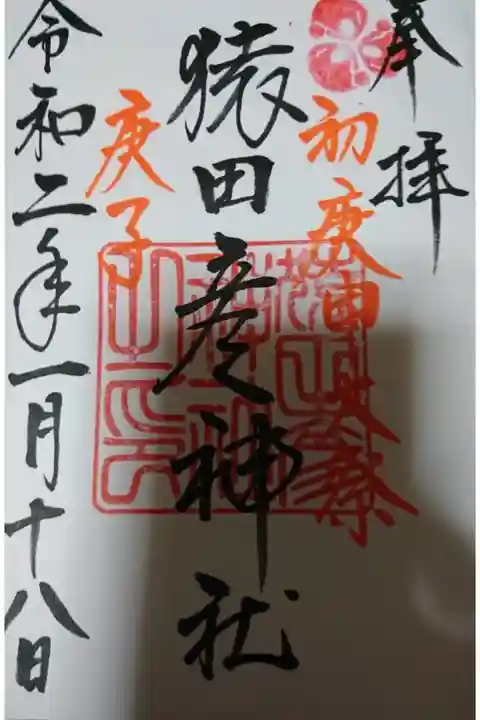 奉拝
初庚申大祭
猿田彦神社
庚子
令和二年一月十八日